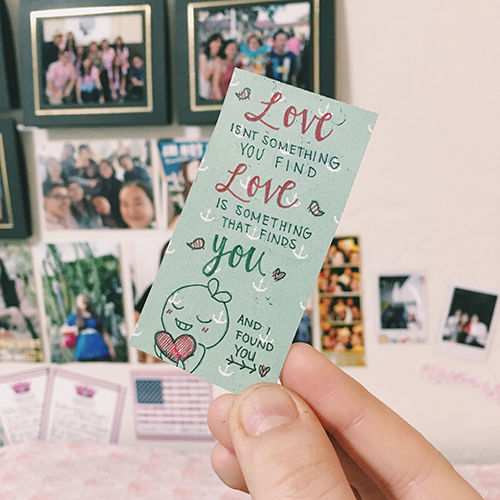 Love
ISNT SOMETHING
YOU FIND
Love
IS SOMETHING
THAT FINDS
you
AND I
FOUND
YOU